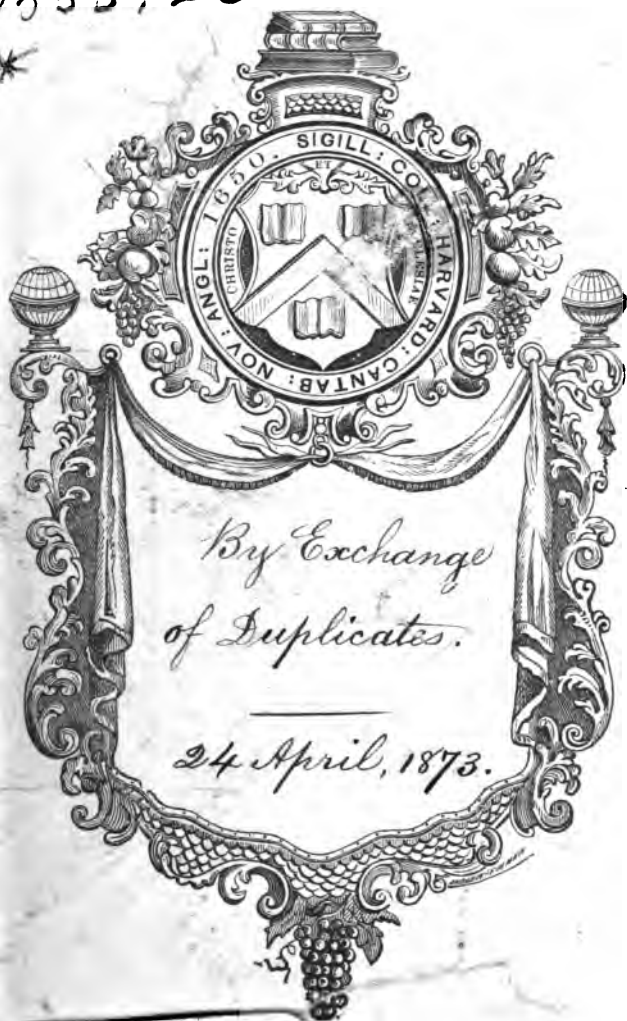 SIGILL: COL: HARVARD: CANTAB: NOV: ANGL: 1650.
ET
CHRISTO
By Exchange
of Duplicates.
24 April, 1873.